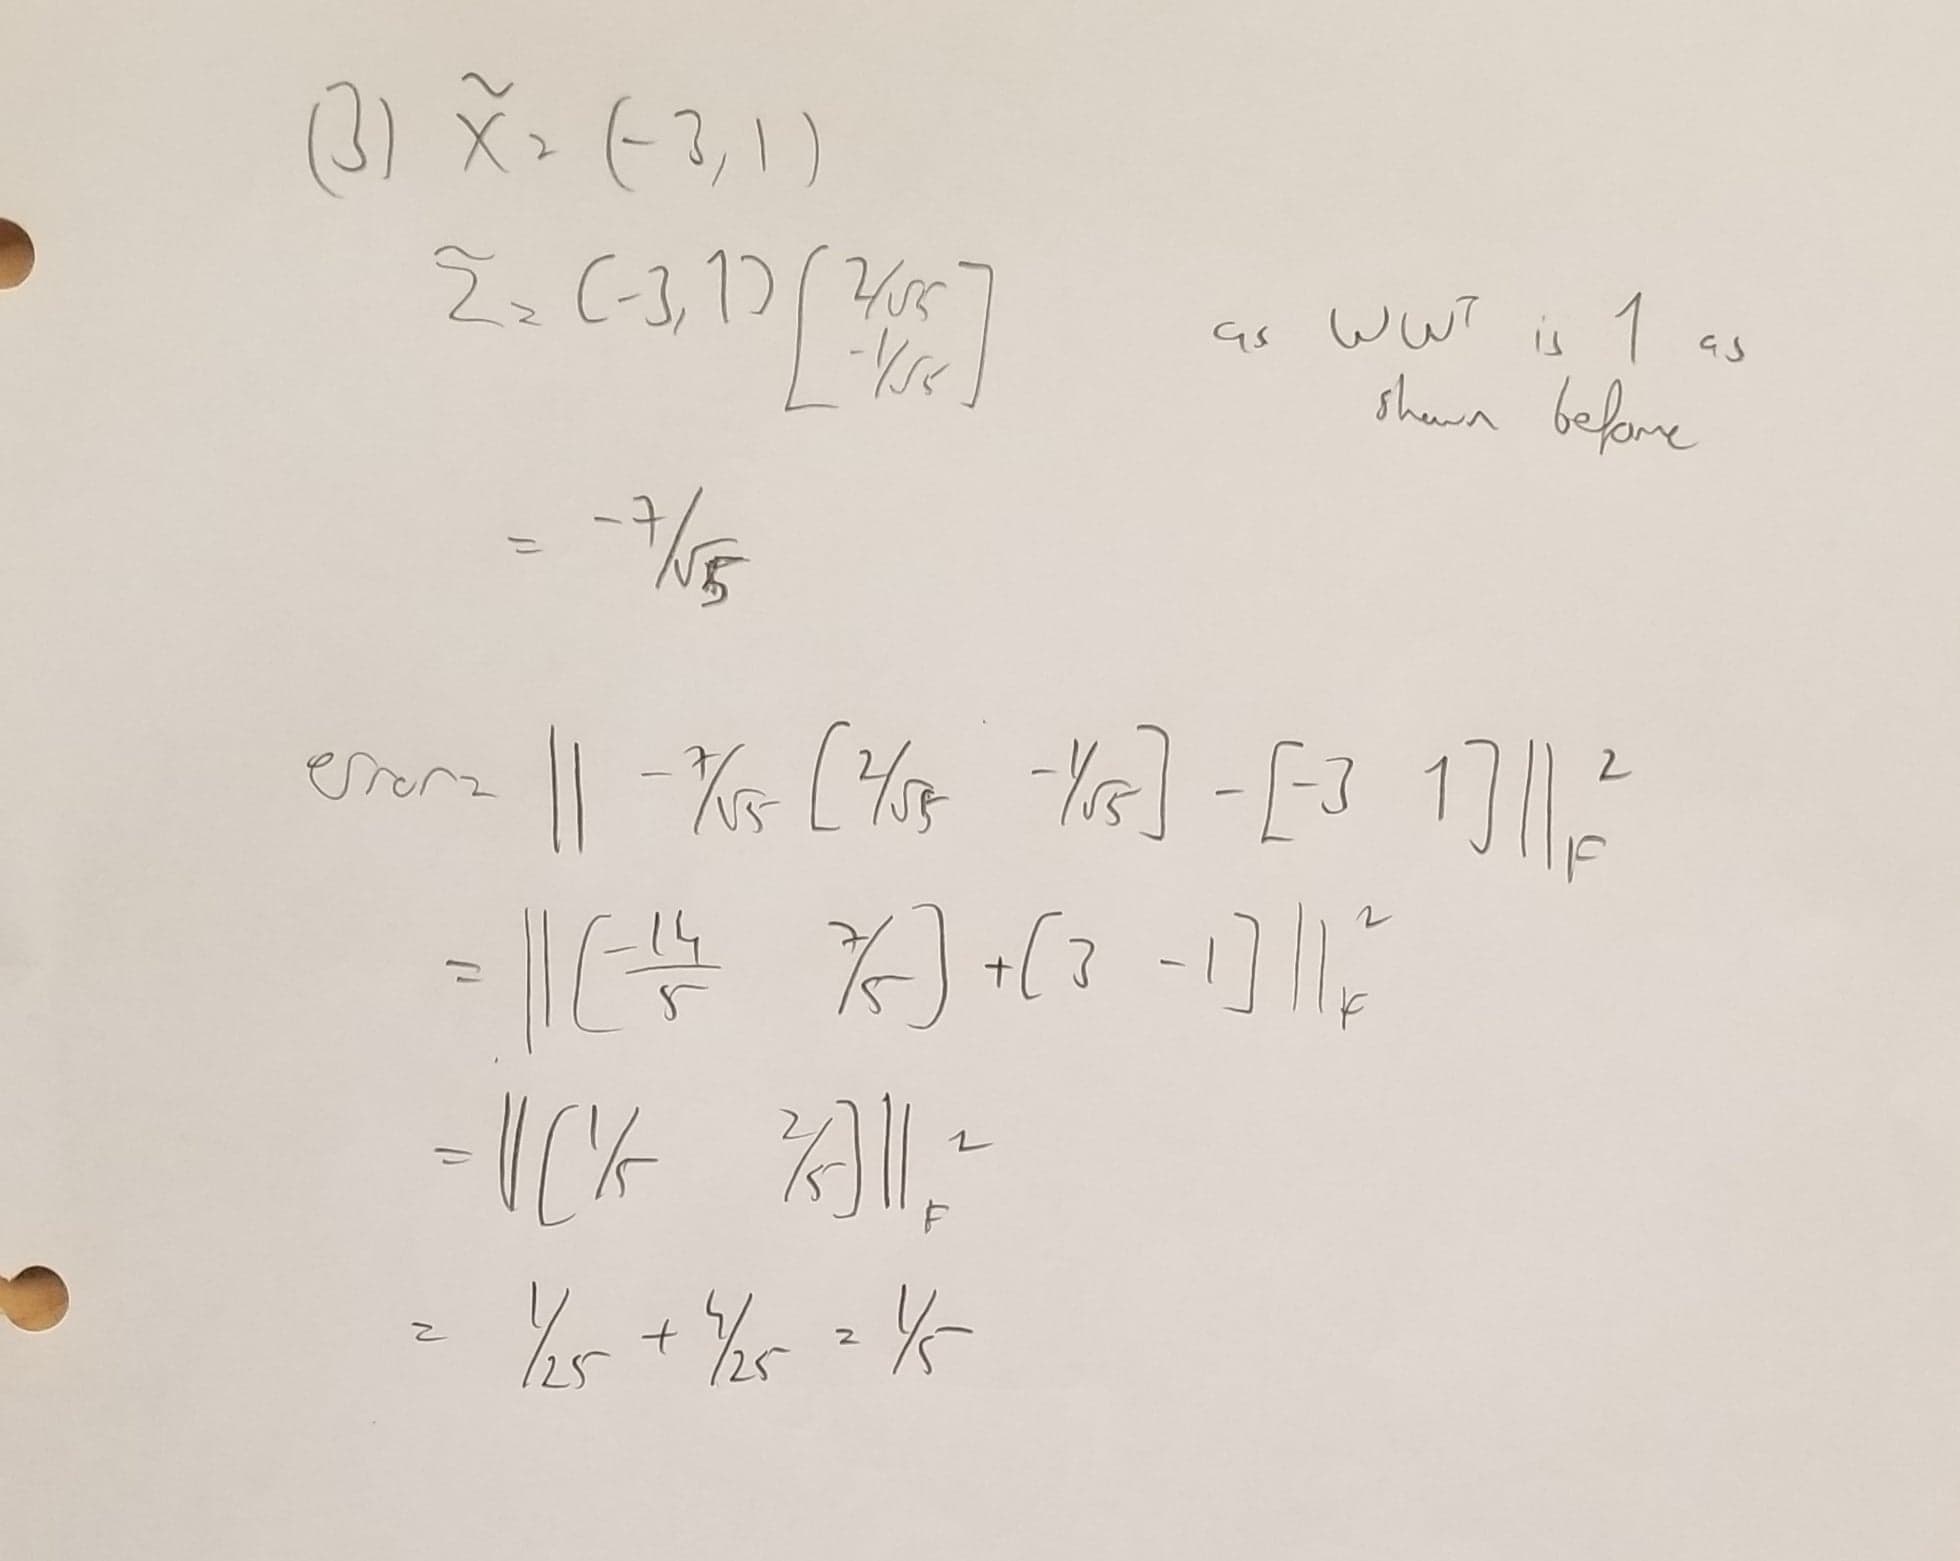 (3) X̃ = (-3, 1)
Z̃ = (-3, 1) [2/√5
-1/√5]
as WWᵀ is 1 as
shown before
= -7/√5
error = || -7/√5 [2/√5 -1/√5] - [-3 1] ||²_F
= || [-14/5 7/5] + [3 -1] ||²_F
= || [1/5 2/5] ||²_F
= 1/25 + 4/25 = 1/5